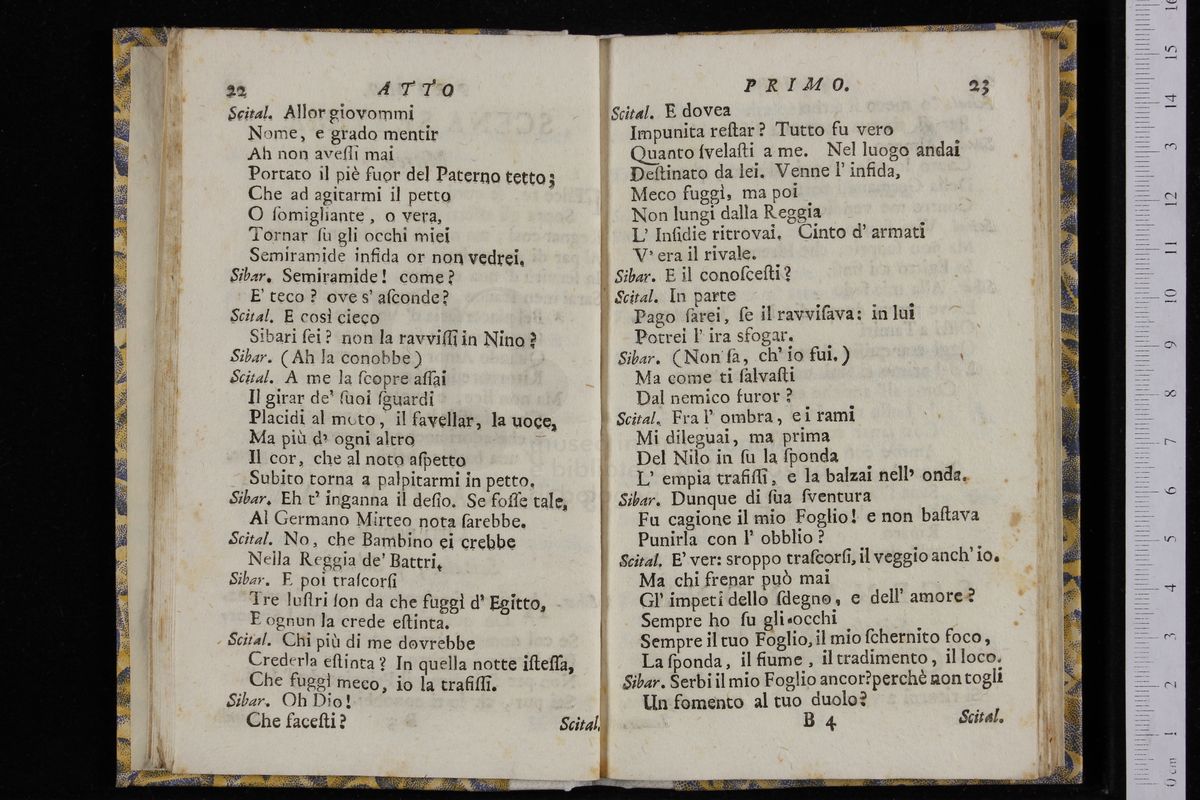 22 ATTO
Scital. Allor giovommi
Nome, e grado mentir
Ah non aveſſi mai
Portato il piè fuor del Paterno tetto;
Che ad agitarmi il petto
O ſomigliante, o vera,
Tornar ſu gli occhi miei
Semiramide infida or non vedrei.
Sibar. Semiramide! come?
E' teco? ove s' aſconde?
Scital. E così cieco
Sibari ſei? non la ravviſſi in Nino?
Sibar. (Ah la conobbe)
Scital. A me la ſcopre aſſai
Il girar de' ſuoi ſguardi
Placidi al moto, il favellar, la uoce,
Ma più d' ogni altro
Il cor, che al noto aſpetto
Subito torna a palpitarmi in petto.
Sibar. Eh t' inganna il deſio. Se foſſe tale,
Al Germano Mirteo nota ſarebbe.
Scital. No, che Bambino ei crebbe
Nella Reggia de' Battri.
Sibar. E poi traſcorſi
Tre luſtri ſon da che fuggì d' Egitto,
E ognun la crede eſtinta.
Scital. Chi più di me dovrebbe
Crederla eſtinta? In quella notte iſteſſa,
Che fuggì meco, io la trafiſſi.
Sibar. Oh Dio!
Che faceſti?
Scital.
PRIMO. 23
Scital. E dovea
Impunita reſtar? Tutto fu vero
Quanto ſvelaſti a me. Nel luogo andai
Deſtinato da lei. Venne l' infida,
Meco fuggì, ma poi
Non lungi dalla Reggia
L' Inſidie ritrovai. Cinto d' armati
V' era il rivale.
Sibar. E il conoſceſti?
Scital. In parte
Pago ſarei, ſe il ravviſava: in lui
Potrei l' ira sfogar.
Sibar. (Non ſa, ch' io fui.)
Ma come ti ſalvaſti
Dal nemico furor?
Scital. Fra l' ombra, e i rami
Mi dileguai, ma prima
Del Nilo in ſu la ſponda
L' empia trafiſſi, e la balzai nell' onda.
Sibar. Dunque di ſua ſventura
Fu cagione il mio Foglio! e non baſtava
Punirla con l' obblio?
Scital. E' ver: sroppo traſcorſi, il veggio anch' io.
Ma chi frenar può mai
Gl' impeti dello ſdegno, e dell' amore?
Sempre ho ſu gli occhi
Sempre il tuo Foglio, il mio ſchernito foco,
La ſponda, il fiume, il tradimento, il loco.
Sibar. Serbi il mio Foglio ancor? perchè non togli
Un fomento al tuo duolo?
B 4 Scital.